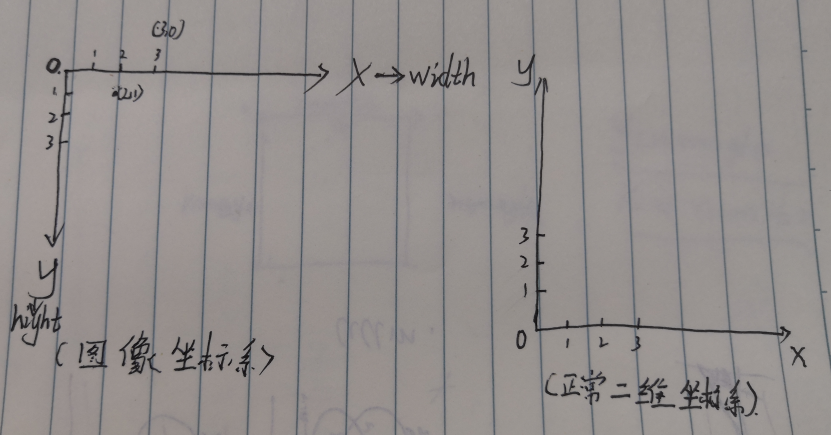 (3,0)
0 1 2 3 X→width
1 (2,1)
2
3
y
hight
(图像坐标系)
y
3
2
1
0 1 2 3 X
(正常二维坐标系)